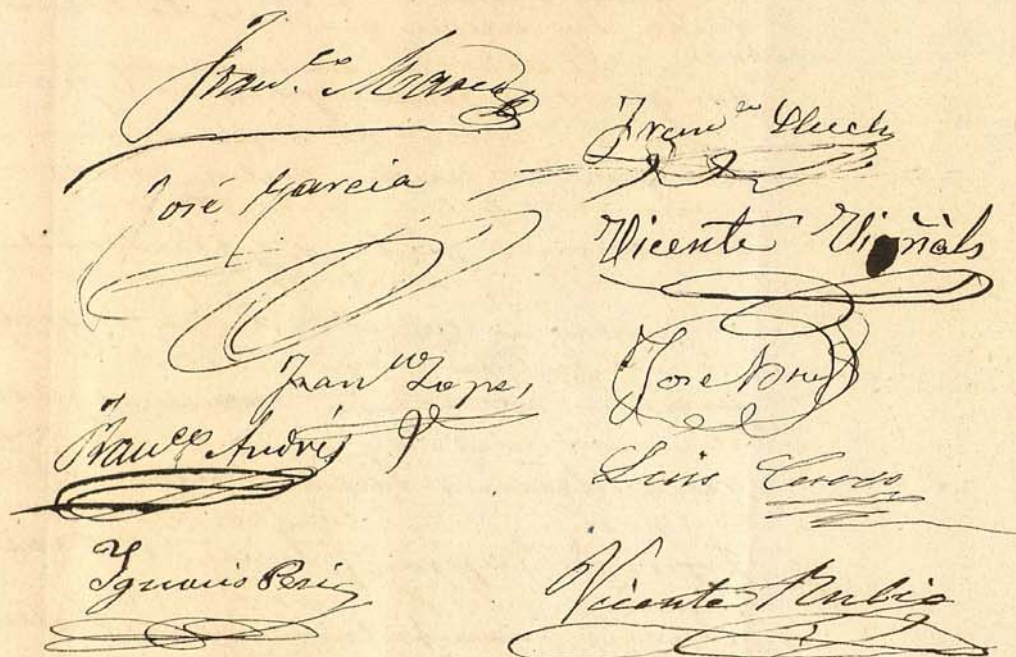 Fran.co
José Garcia
Fran.co Lopez
Fran.co Andrés
Ignacio Peris
Fran.co Lluch
Vicente Viñals
José
Luis
Vicente Rubio